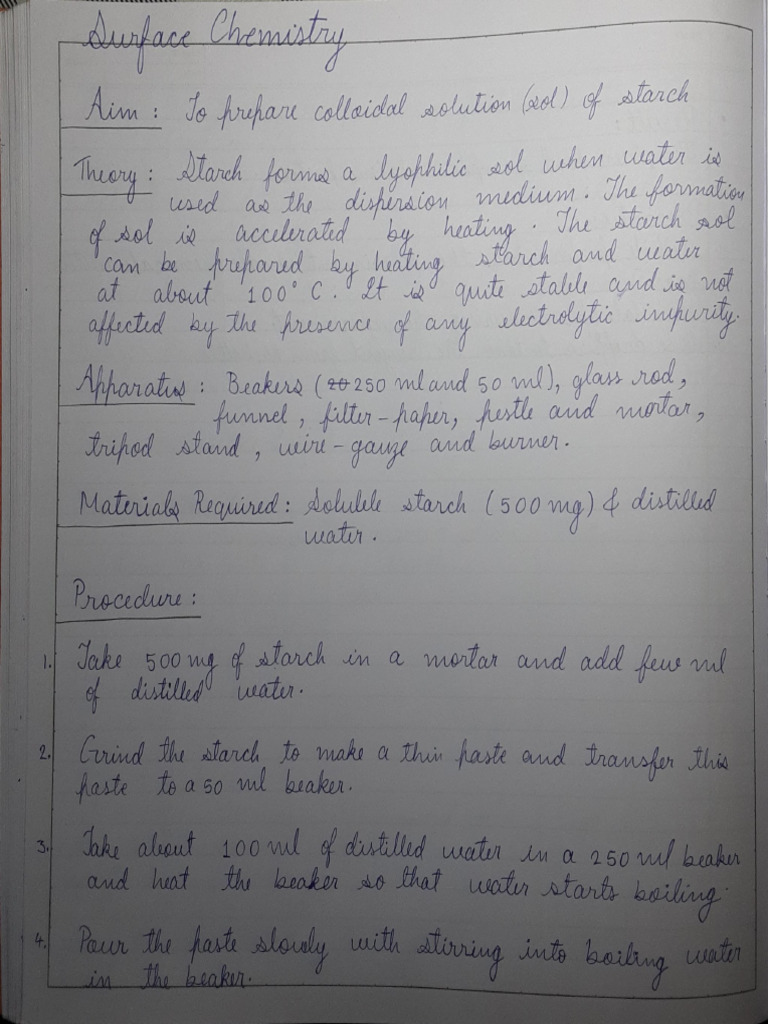 Surface Chemistry
Aim : To prepare colloidal solution (sol) of starch
Theory : Starch forms a lyophilic sol when water is
used as the dispersion medium. The formation
of sol is accelerated by heating. The starch sol
can be prepared by heating starch and water
at about 100° C. It is quite stable and is not
affected by the presence of any electrolytic impurity.
Apparatus : Beakers (20 250 ml and 50 ml), glass rod,
funnel, filter-paper, pestle and mortar,
tripod stand, wire-gauze and burner.
Materials Required : Soluble starch (500 mg) & distilled
water.
Procedure :
1. Take 500 mg of starch in a mortar and add few ml
of distilled water.
2. Grind the starch to make a thin paste and transfer this
paste to a 50 ml beaker.
3. Take about 100 ml of distilled water in a 250 ml beaker
and heat the beaker so that water starts boiling.
4. Pour the paste slowly with stirring into boiling water
in the beaker.